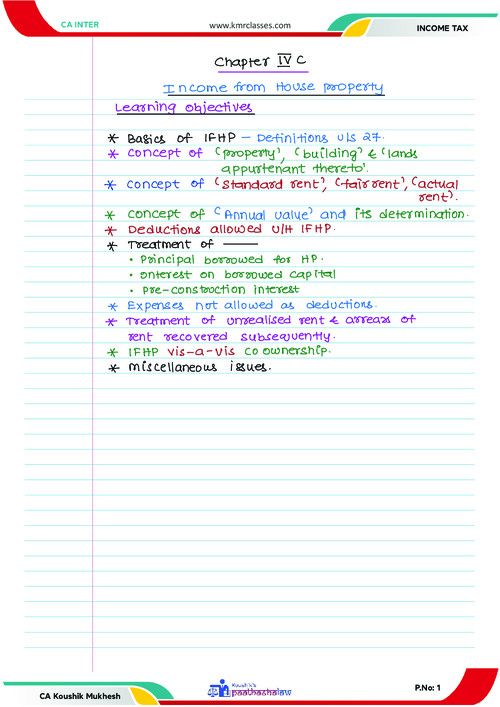 CA INTER
www.kmrclasses.com
INCOME TAX
Chapter IV C
Income from House property
Learning objectives
* Basics of IFHP - Definitions u/s 27.
* concept of 'property', 'building' & 'lands
appurtenant thereto'.
* concept of 'Standard rent', 'fair rent', 'actual
rent'.
* concept of 'Annual value' and its determination.
* Deductions allowed U/H IFHP.
* Treatment of ———
• Principal borrowed for HP.
• Interest on borrowed capital
• Pre-construction interest
* Expenses not allowed as deductions.
* Treatment of unrealised rent & arrears of
rent recovered subsequently.
* IFHP vis-a-vis co ownership.
* Miscellaneous issues.
CA Koushik Mukhesh
Koushik's
paathashalaw
P.No: 1